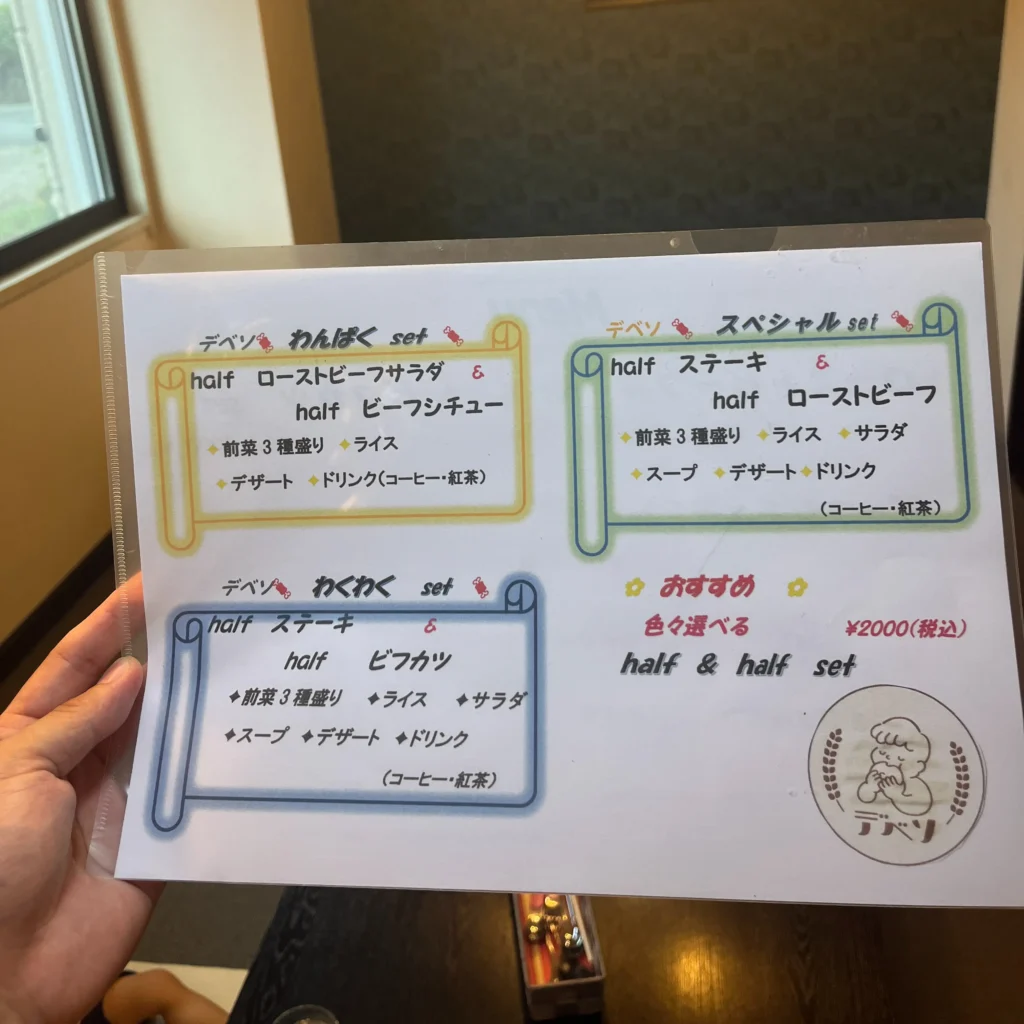 デベソ わんぱく set
half ローストビーフサラダ &
half ビーフシチュー
前菜3種盛り ライス
デザート ドリンク(コーヒー・紅茶)
デベソ スペシャル set
half ステーキ &
half ローストビーフ
前菜3種盛り ライス サラダ
スープ デザート ドリンク
(コーヒー・紅茶)
デベソ わくわく set
half ステーキ &
half ビフカツ
前菜3種盛り ライス サラダ
スープ デザート ドリンク
(コーヒー・紅茶)
おすすめ
色々選べる ¥2000(税込)
half & half set
デベソ